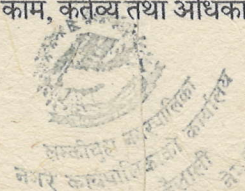 काम, कर्तव्य तथा अधिका
लम्कीचुहा नगरपालिका
नगर कार्यपालिकाको कार्यालय
कैलाली